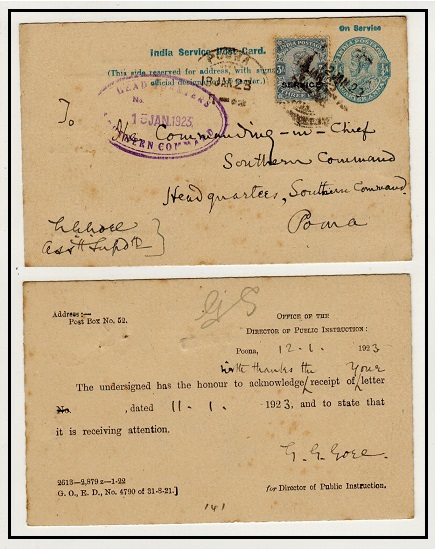 On Service
India Service Post Card.
(This side reserved for address, with
official
POONA
13 JAN. 23
INDIA POSTAGE
SERVICE
HEAD QUARTERS
No.
15 JAN. 1923
SOUTHERN COMMAND
To
The Commanding-in-Chief
Southern Command
Headquarters, Southern Command
Poona
Asstt Supdt
Address:—
Post Box No. 52.
OFFICE OF THE
DIRECTOR OF PUBLIC INSTRUCTION:
Poona, 12. 1. 1923
with thanks the your
The undersigned has the honour to acknowledge receipt of letter
No. , dated 11. 1. 1923, and to state that
it is receiving attention.
2613—2,879 z—1-22
G. O., E. D., No. 4790 of 31-8-21.]
for Director of Public Instruction.
141